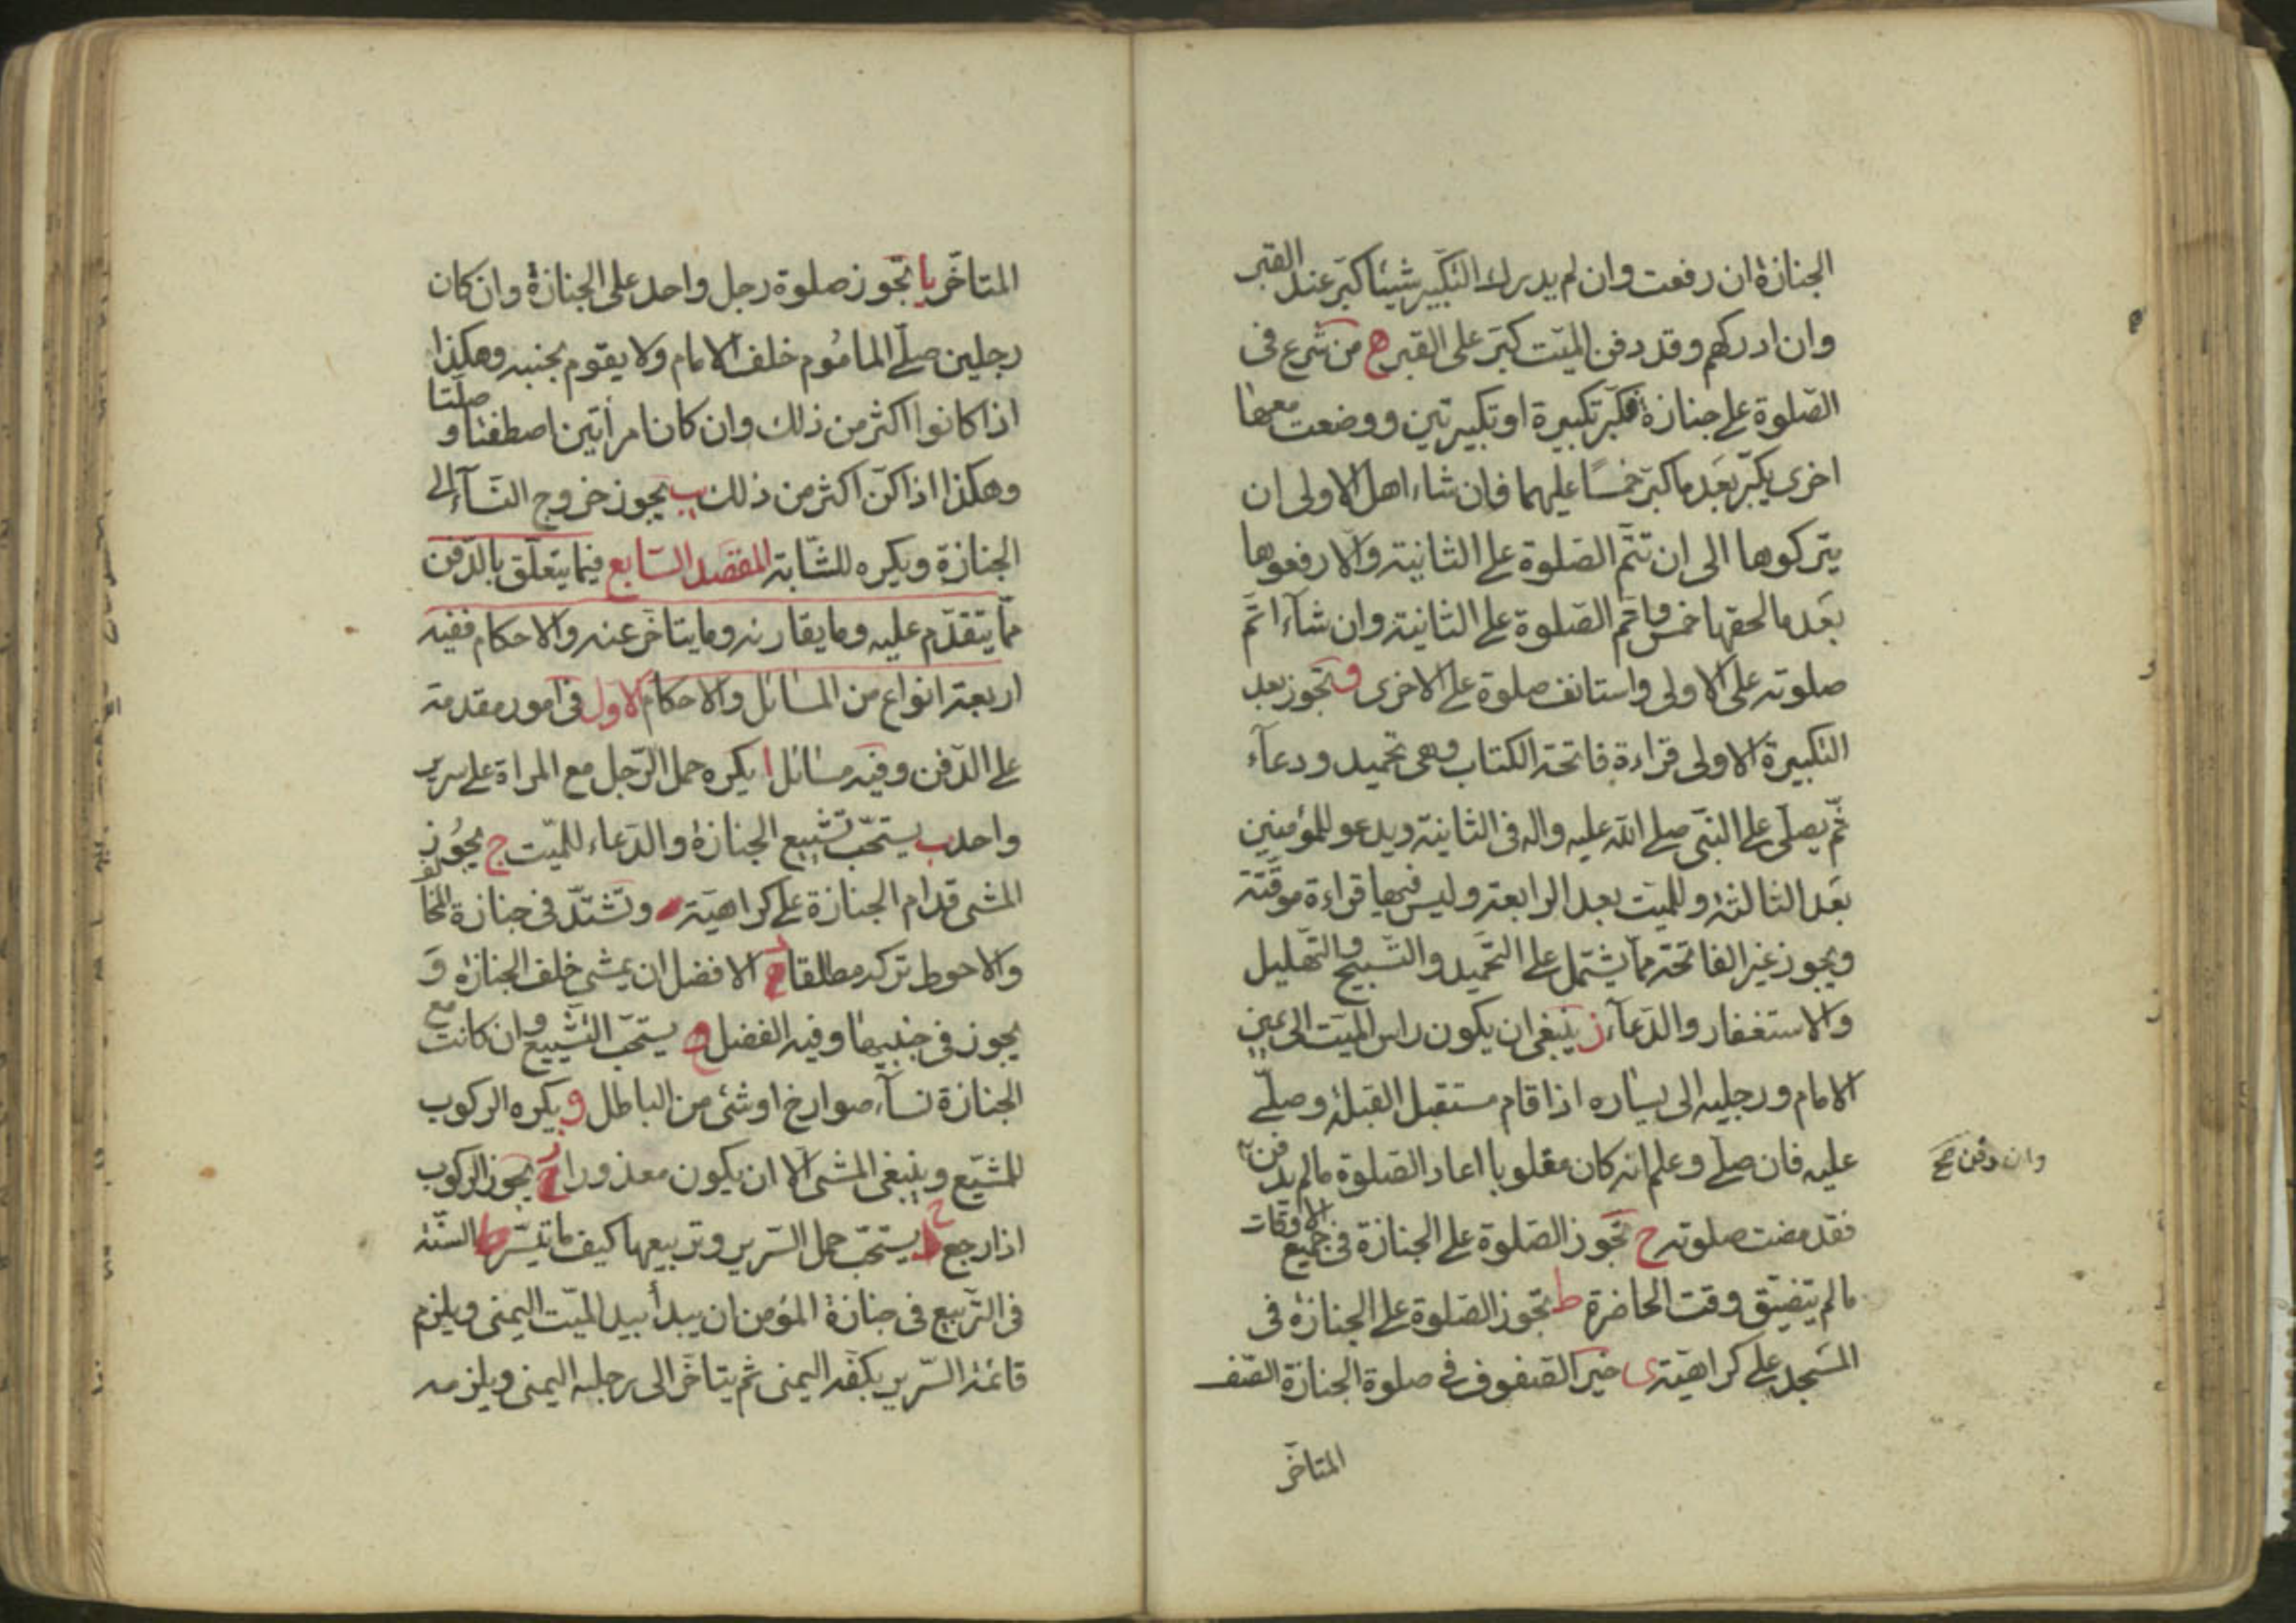 الجنازة ان رفعت وان لم يدرك التكبير شيئا كبر عند القبر
وان ادركهم وقد دفن الميّت كبّر على القبر ه من شرع فى
الصّلوة على جنازة فكبّر تكبيرة او تكبيرتين ووضعت معها
اخرى يكبّر بعد ما كبّر خمسًا عليهما فان شاء اهل الاولى ان
يتركوها الى ان تتمّ الصّلوة على الثانية والّا رفعوها
بعد ما لحقها خمس واتم الصّلوة على الثانية وان شآء اتمّ
صلوته على الاولى واستانف صلوة على الاخرى و تجوز بعد
التكبيرة الاولى قراءة فاتحة الكتاب وهى تحميد ودعآء
ثمّ يصلّى على النبّى صلى الله عليه واله فى الثانية ويدعو للمؤمنين
بعد الثالثة وللميّت بعد الرابعة وليس فيها قراءة موقّتة
ويجوز غير الفاتحة ممّا يشتمل على التّحميد والتّسبيح والتّهليل
والاستغفار والدّعآء ز ينبغى ان يكون راس الميّت الى يمين
الامام ورجليه الى يساره اذا قام مستقبل القبلة وصلّى
عليه فان صلّى وعلم انه كان مقلوبا اعاد الصّلوة ما لم يدفن
وان دفن صح
فقد مضت صلوته ح تجوز الصّلوة على الجنازة فى جميع الاوقات
ما لم يتضيّق وقت الحاضرة ط تجوز الصّلوة على الجنازة فى
المسجد على كراهيّة ى خير الصّفوف فى صلوة الجنازة الصّف
المتاخّر
المتاخّر يا تجوز صلوة رجل واحد على الجنازة وان كان
رجلين صلّى الماموم خلف الامام ولا يقوم بجنبه وهكذا
اذا كانوا اكثر من ذلك وان كان امرأتين اصطفتا و صلّتا
وهكذا اذا كنّ اكثر من ذلك يب يجوز خروج النّسآء الى
الجنازة ويكره للشّابة المقصد السّابع فيما يتعلّق بالدّفن
ممّا يتقدّم عليه وما يقارنه وما يتاخّر عنه والاحكام ففيه
اربعة انواع من المسائل والاحكام الاول فى امور مقدمة
على الدّفن وفيه مسائل ا يكره حمل الرّجل مع المراة على سرير
واحد ب يستحبّ تشييع الجنازة والدّعاء للميّت ج يجوز
المشى قدام الجنازة على كراهيّة وتشتدّ فى جنازة المخالف
والاحوط تركه مطلقا د الافضل ان يمشى خلف الجنازة و
يجوز فى جنبيها وفيه الفضل ه يستحبّ التشييع وان كانت مع
الجنازة نسآء صوارخ او شئ من الباطل و يكره الركوب
للمشيّع وينبغى المشى الّا ان يكون معذورا ز يجوز الركوب
اذا رجع ح يستحبّ حمل السّرير وتربيعها كيف ما تيسّر ط السّنّة
فى التّربيع فى جنازة المؤمن ان يبدأ بيد الميّت اليمنى ويلزم
قائمة السّرير بكفّه اليمنى ثم يتاخّر الى رجله اليمنى ويلزمه